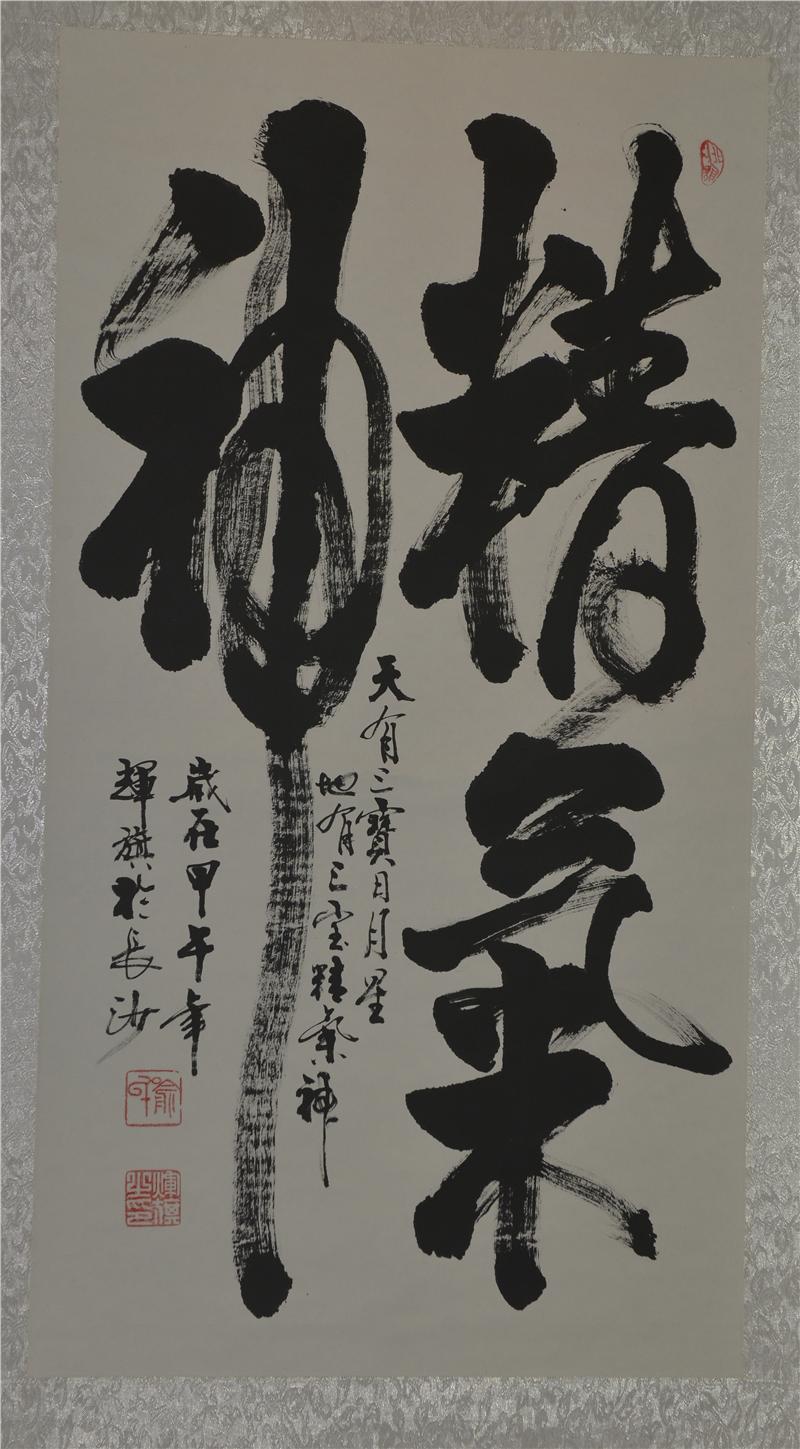 精氣
神
天有三寶日月星
地有三宝精氣神
歲在甲午年
輝旗於長沙